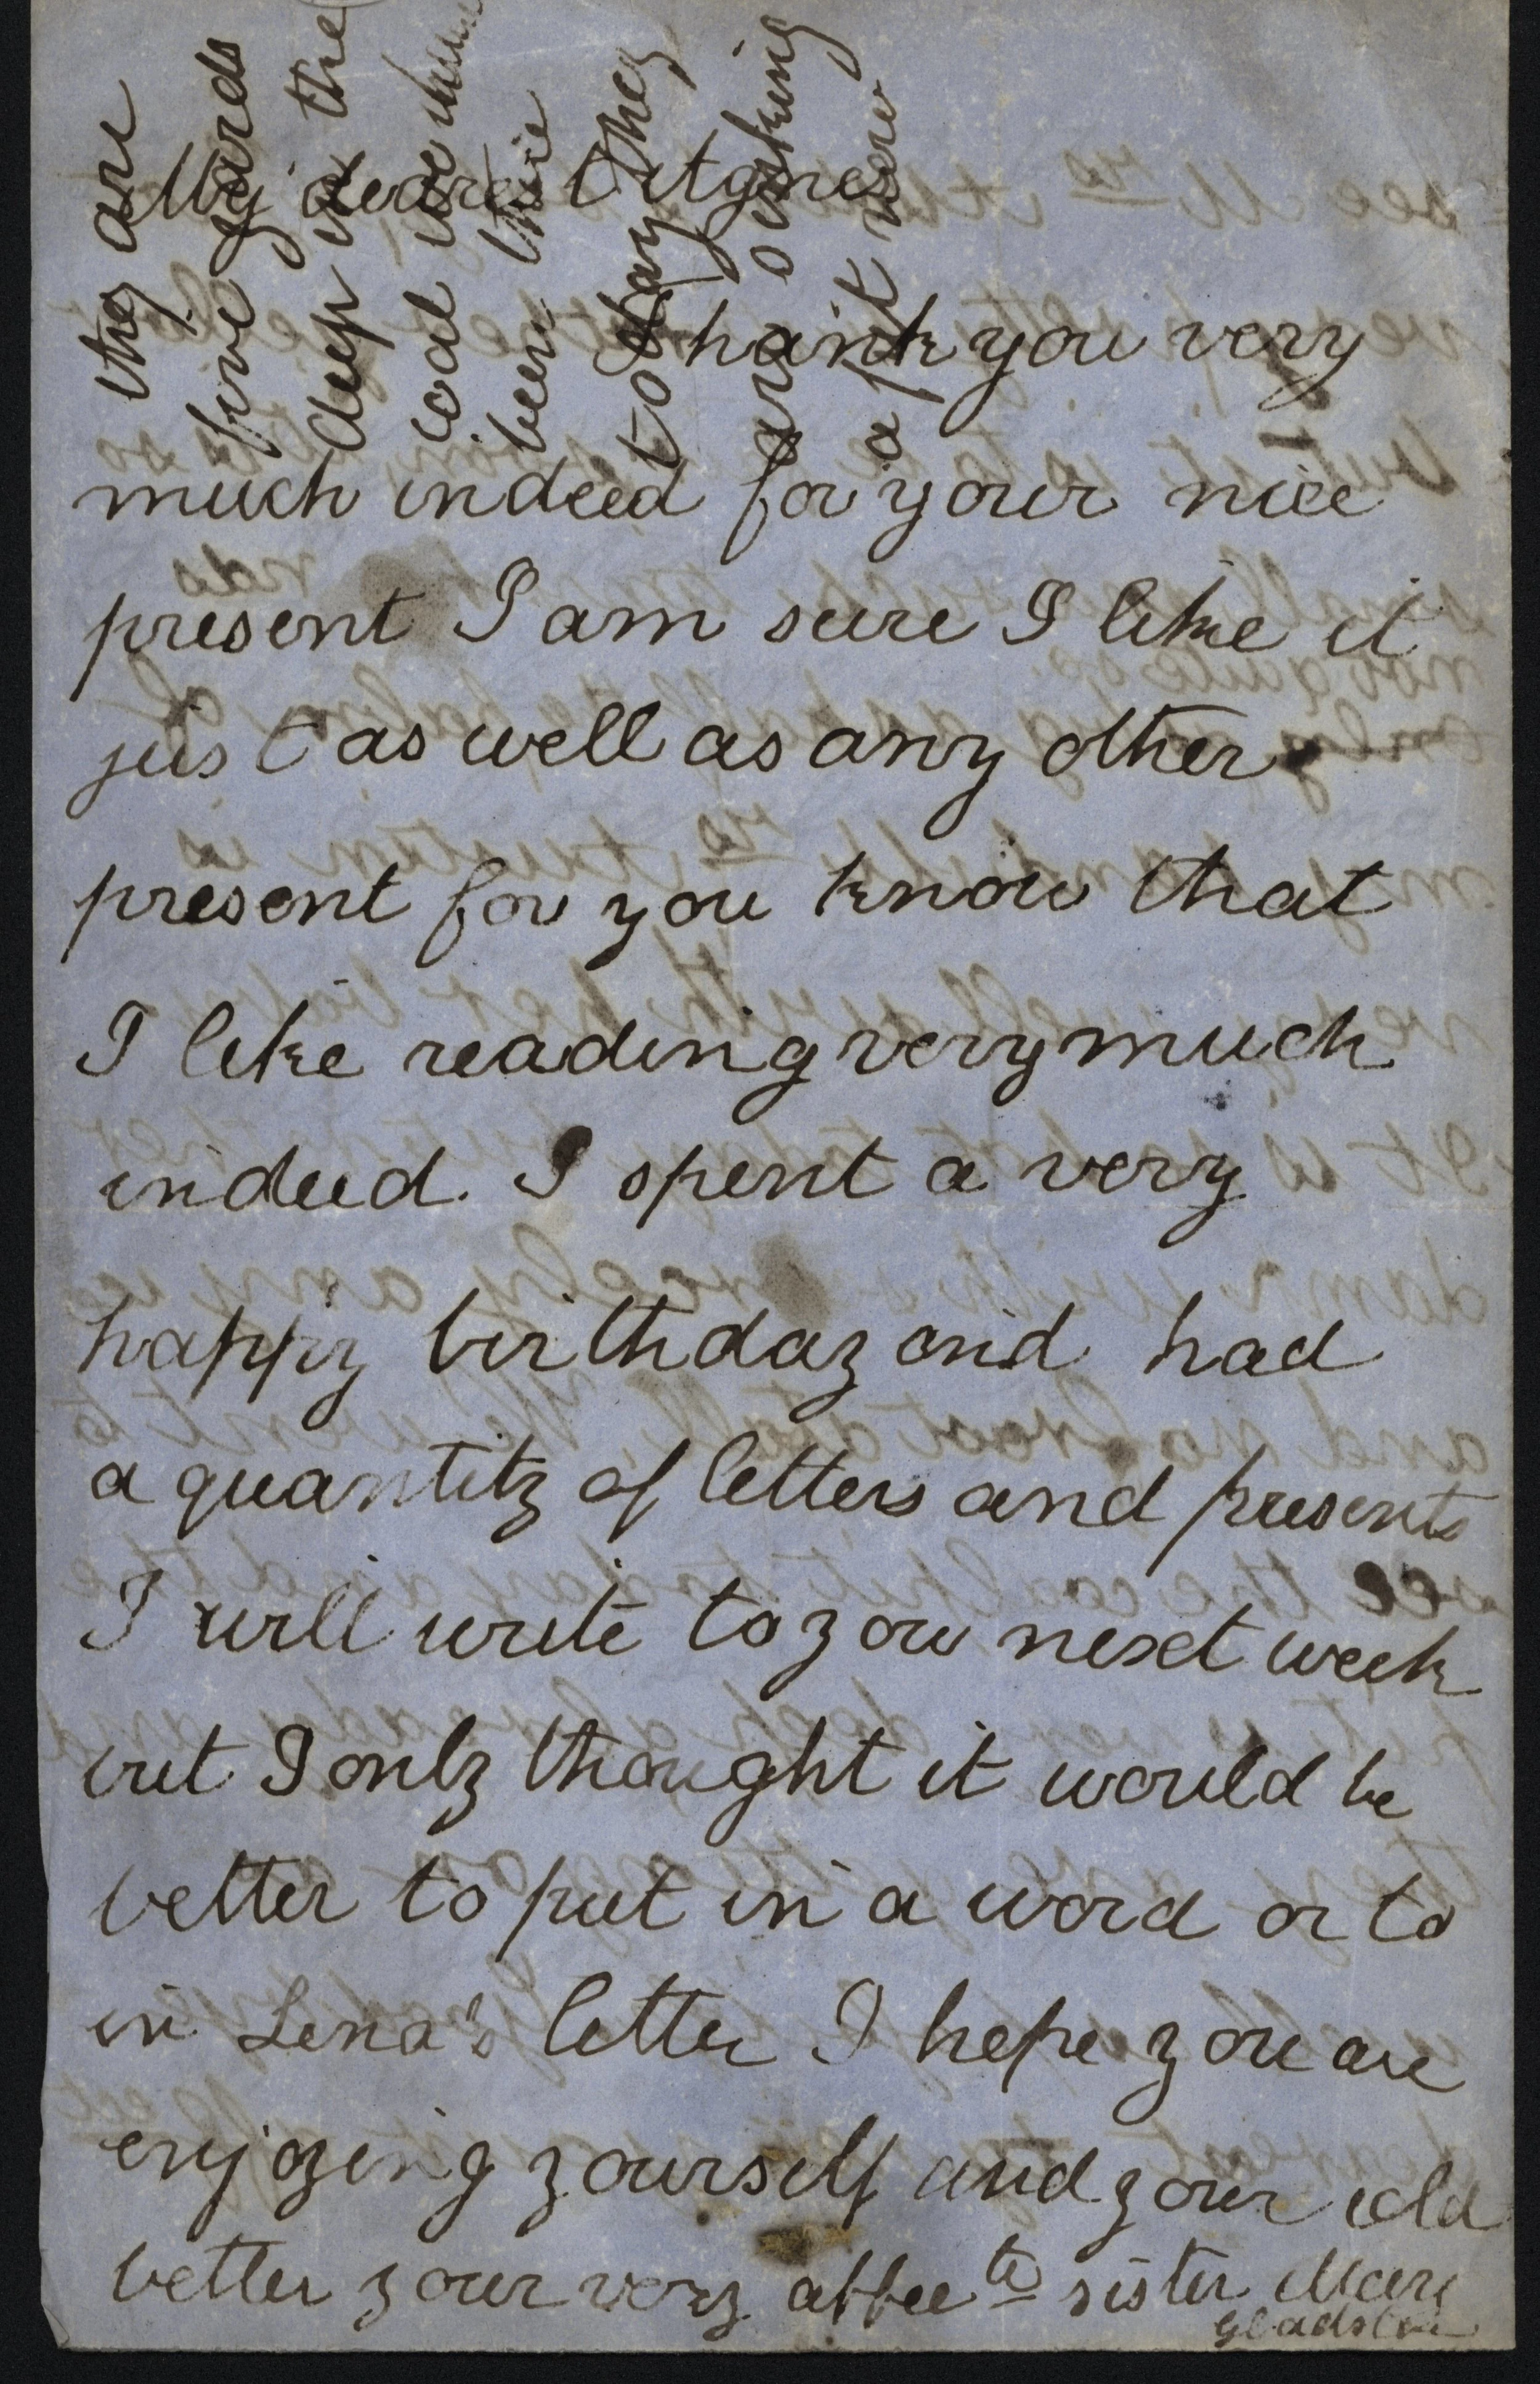 My dearest Agnes
Thank you very
much indeed for your nice
present I am sure I like it
just as well as any other
present for you know that
I like reading very much
indeed. I spent a very
happy birthday and had
a quantity of letters and presents
I will write to you next week
but I only thought it would be
better to put in a word or to
in Lena's letter I hope you are
enjoying yourself and your cold
better your very affecte sister Mary
Gladstone
they are
five yards
deep in the
coal we have
been there
to day they
are sinking
a pit new